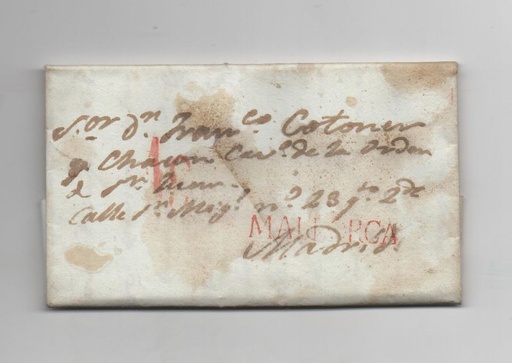 S.or D.n Fran.co Cotoner
y Chacon Cav.o de la Orden
d S.n Juan
Calle S.n Mig.l n.o 28 q.to 2.do
MALLORCA
Madrid.